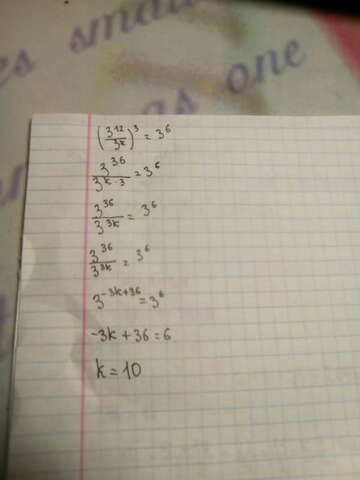 es small
as one
(3^12/3^k)^3 = 3^6
3^36/3^(k·3) = 3^6
3^36/3^(3k) = 3^6
3^36/3^(3k) = 3^6
3^(-3k+36) = 3^6
-3k + 36 = 6
k = 10